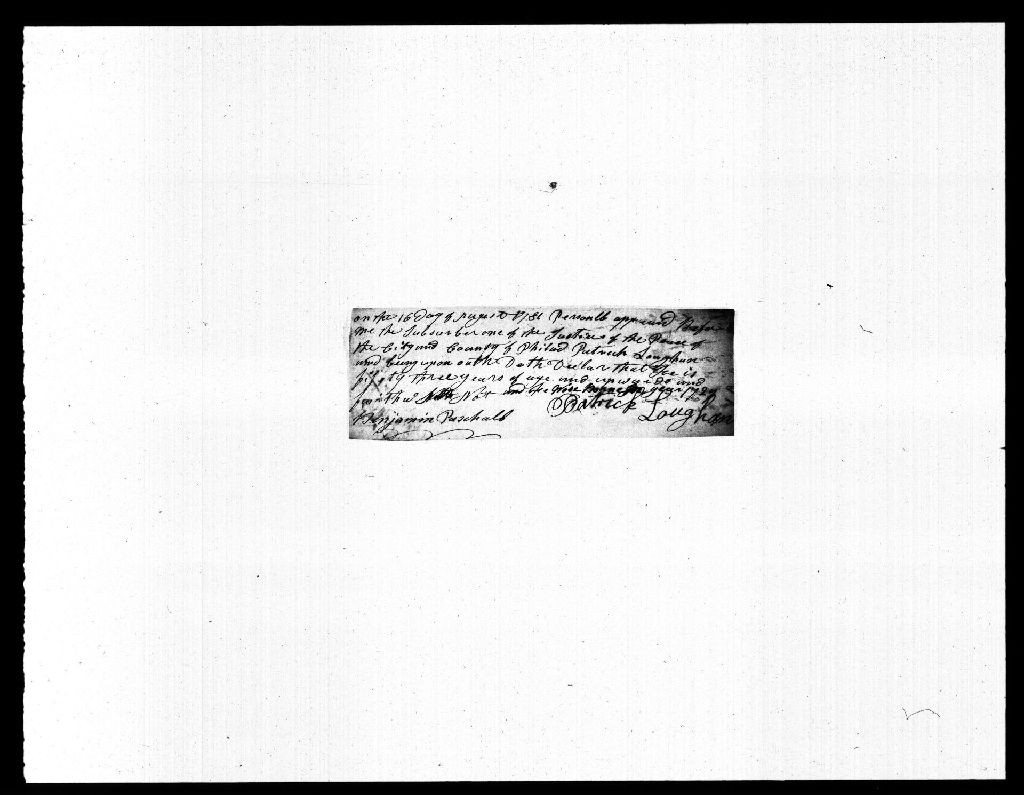 on the 16 Day of August 1781 Personlb appeared before
me the Subscriber one of the Justice of the Peace of
the City and County of Philad Patrick Loughan
and being upon oath Doth Declar that he is
fifty three years of age and upwards and
further Not and he
Patrick Loughan
Benjamin Paschall